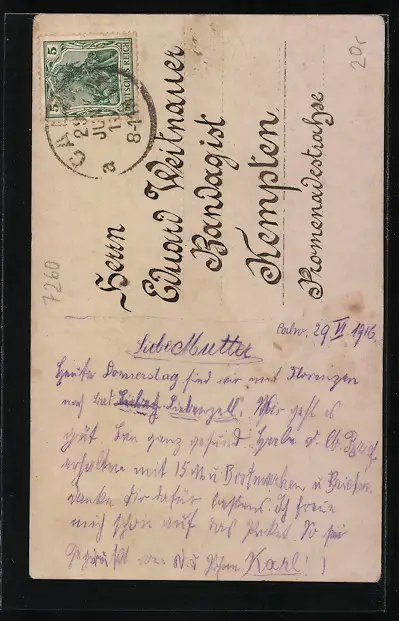 20,-
5
DEUTSCHES REICH
5
CALW
29
JU
8-11
a
Herrn
Eduard Weitnauer
Bandagist
Kempten
Promenadestraße
7260
Calw. 29 VI 1916.
Liebe Mutter
Heute Donnerstag sind wir mit Florenzen
nach Bad Liebenzell. Mir geht es
gut bin ganz gesund. Habe d. lb. Brief
erhalten mit 15 M u Brotmarken u Briefm.
danke dir dafür bestens. Ich freue
mich schon auf das Paket. So sei
gegrüßt von Karl!